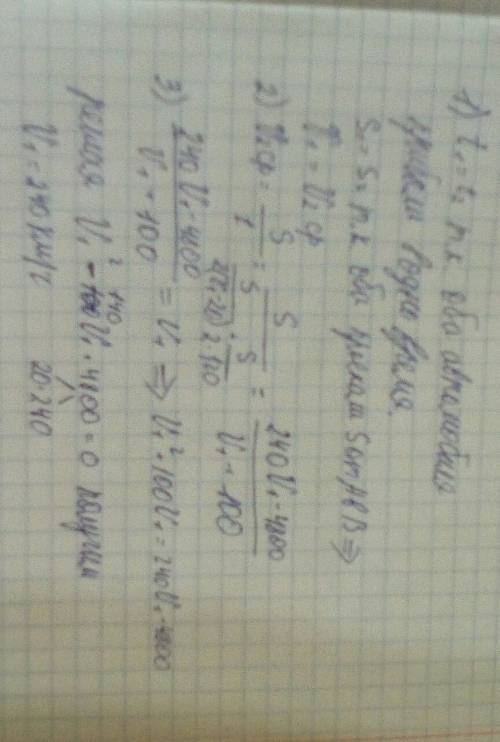 1) t₁ = t₂ т.к оба автомобиля
прибыли в одно время.
S₁ = S₂ т.к оба проехали S от А к В ⇒
V₁ = V₂ ср
2) V₂ ср = S/t = S / (S/(2(V₁-20)) + S/(2·120)) = (240V₁ - 4800)/(V₁ + 100)
3) (240V₁ - 4800)/(V₁ + 100) = V₁ ⇒ V₁² + 100V₁ = 240V₁ - 4800
решая V₁² - 140V₁ + 4800 = 0 получим
V₁ = 240 км/ч 20·240